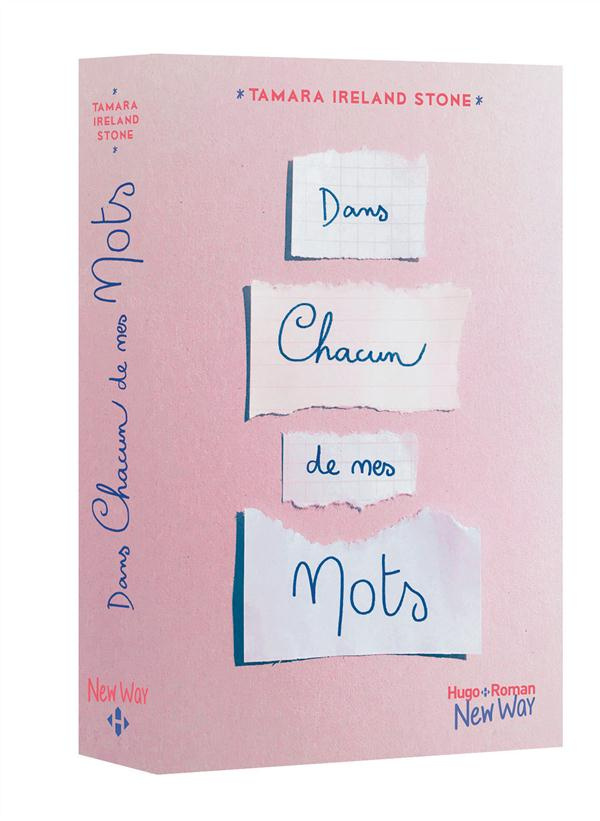 *TAMARA IRELAND STONE*
Dans
Chacun
de mes
Mots
Hugo Roman
New Way
*
TAMARA
IRELAND
STONE
*
Dans Chacun de mes Mots
New Way
H